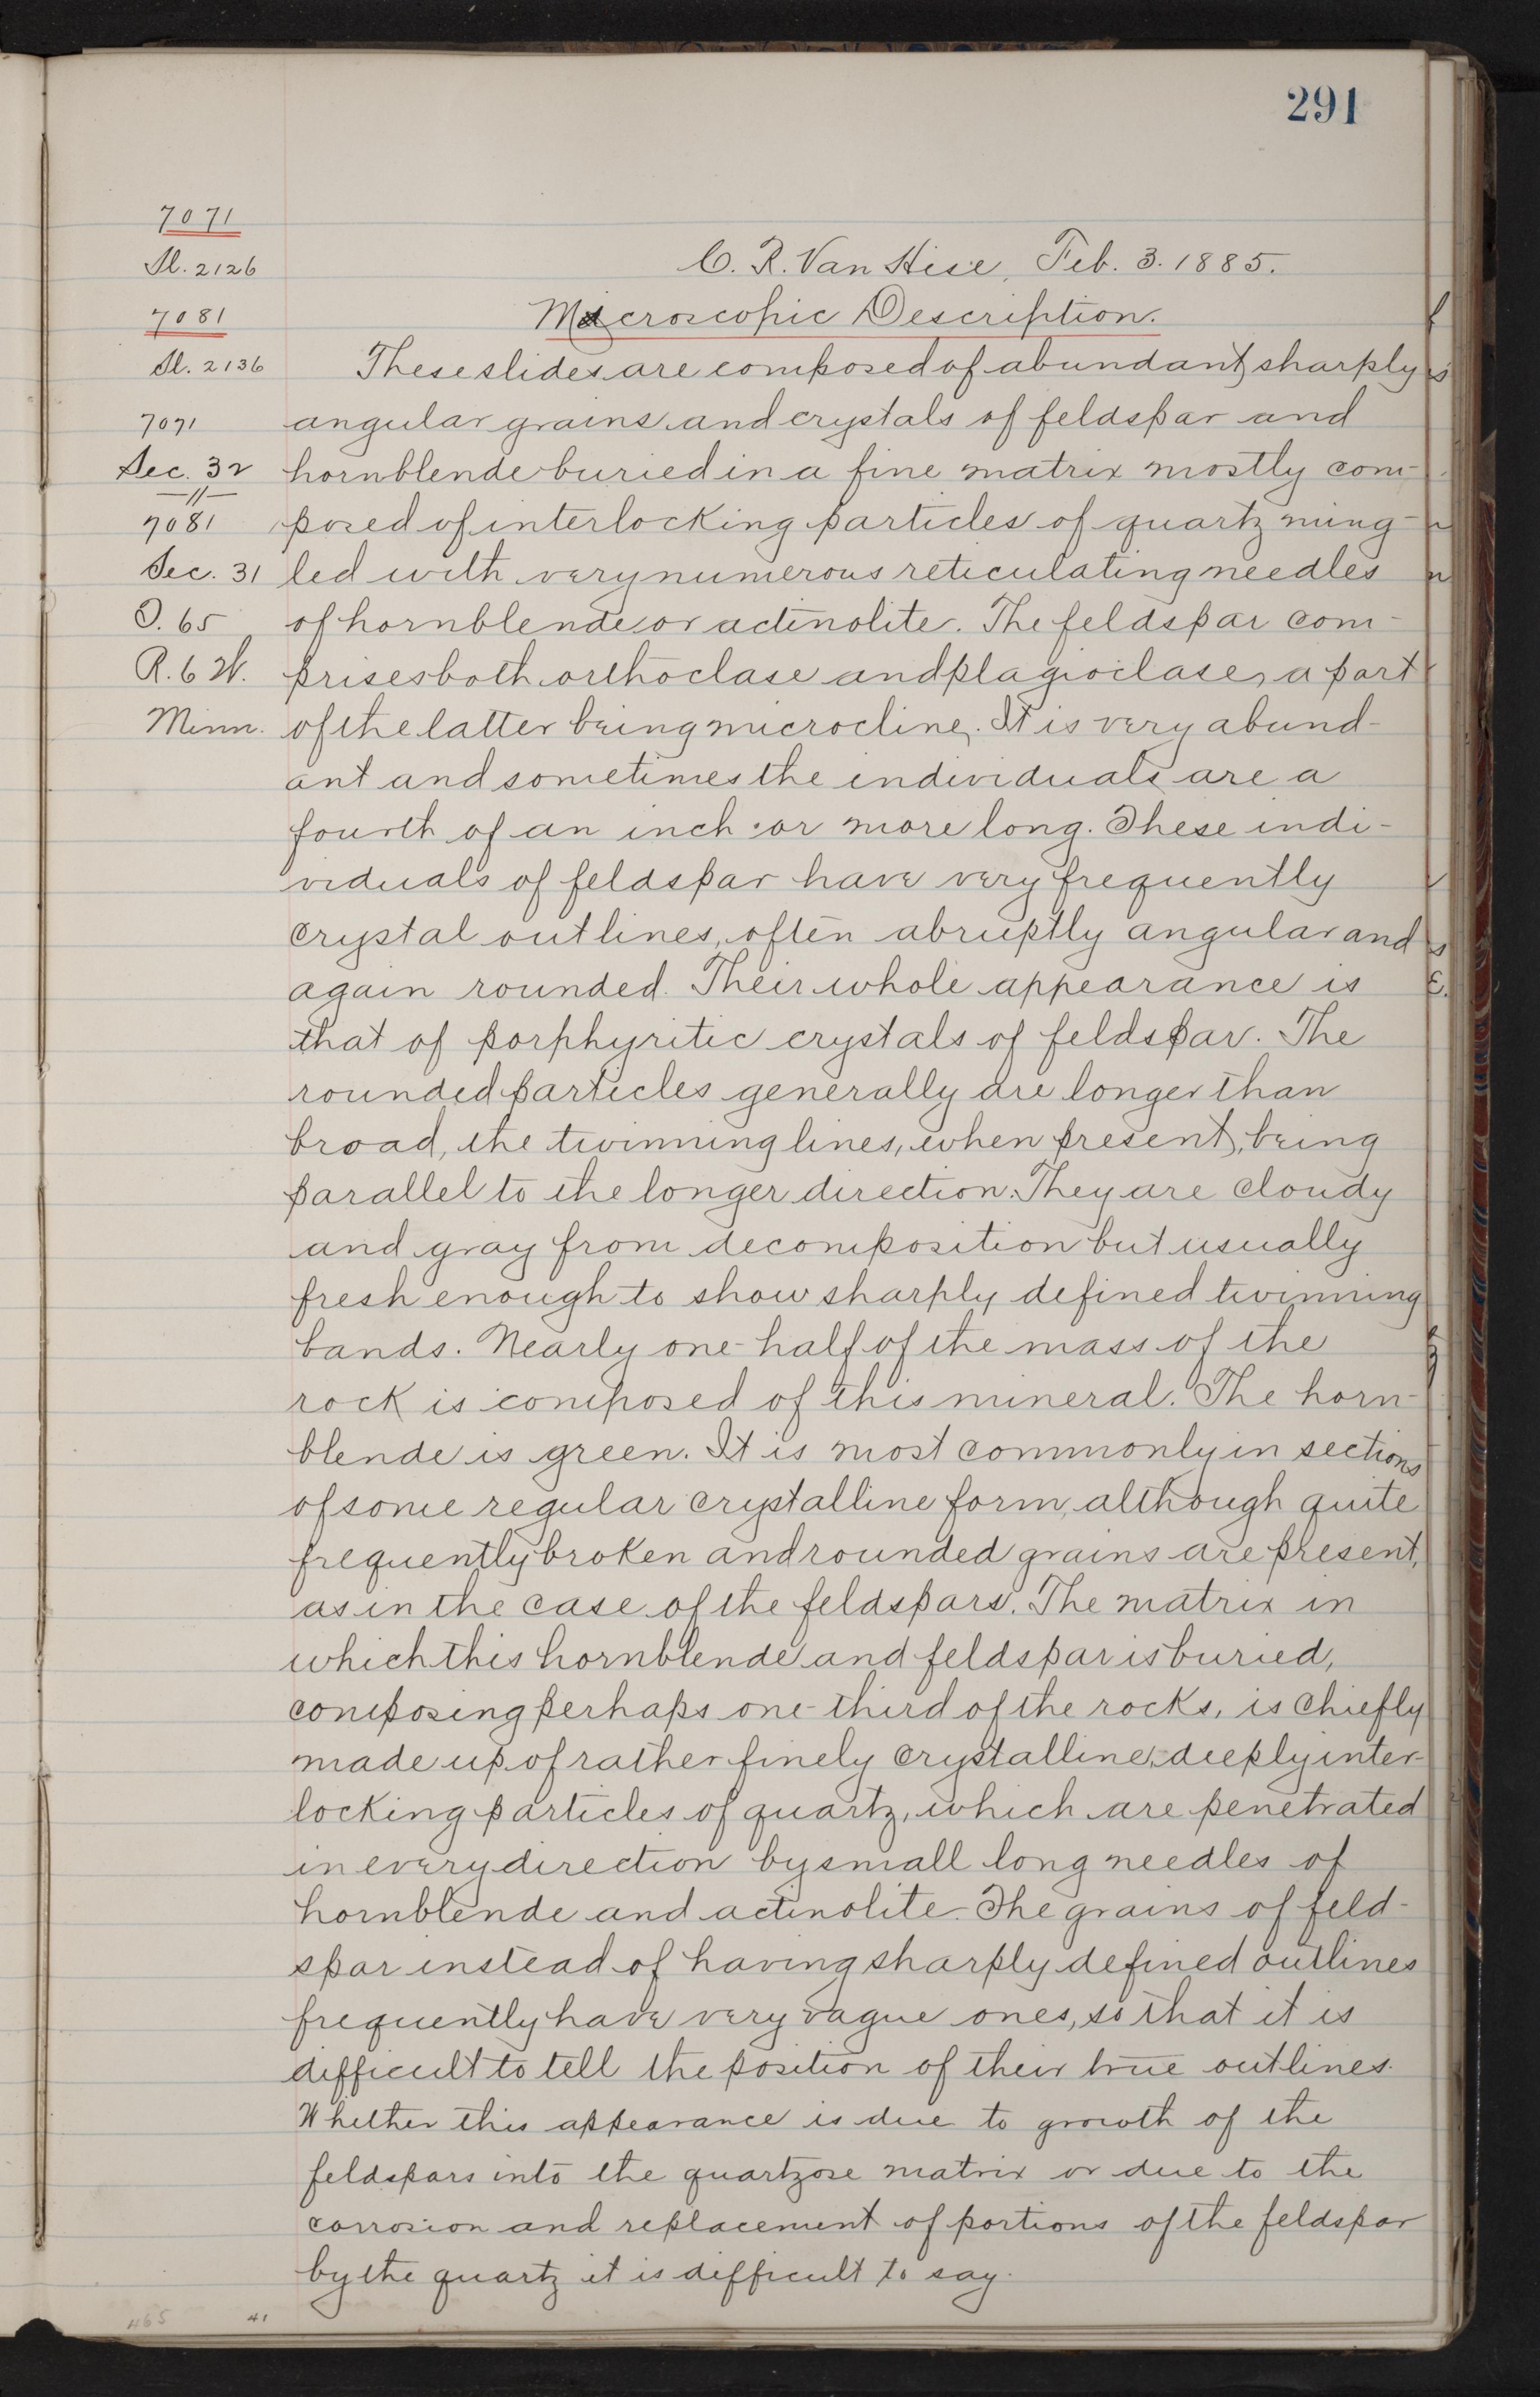 291
7071
Sl. 2126
C. R. Van Hise, Feb. 3. 1885.
7081
Microscopic Description.
Sl. 2136
These slides are composed of abundant, sharply
7071
angular grains and crystals of feldspar and
Sec. 32
hornblende buried in a fine matrix mostly com-
—〃—
7081
posed of interlocking particles of quartz ming-
Sec. 31
led with very numerous reticulating needles
T. 65
of hornblende or actinolite. The feldspar com-
R. 6 W.
prises both orthoclase and plagioclase, a part
Minn.
of the latter being microcline. It is very abund-
ant and sometimes the individuals are a
fourth of an inch or more long. These indi-
viduals of feldspar have very frequently
crystal outlines, often abruptly angular and
again rounded. Their whole appearance is
that of porphyritic crystals of feldspar. The
rounded particles generally are longer than
broad, the twinning lines, when present, being
parallel to the longer direction. They are cloudy
and gray from decomposition but usually
fresh enough to show sharply defined twinning
bands. Nearly one-half of the mass of the
rock is composed of this mineral. The horn-
blende is green. It is most commonly in sections
of some regular crystalline form, although quite
frequently broken and rounded grains are present,
as in the case of the feldspars. The matrix in
which this hornblende and feldspar is buried,
composing perhaps one-third of the rocks, is chiefly
made up of rather finely crystalline, deeply inter-
locking particles of quartz, which are penetrated
in every direction by small long needles of
hornblende and actinolite. The grains of feld-
spar instead of having sharply defined outlines
frequently have very vague ones, so that it is
difficult to tell the position of their true outlines.
Whether this appearance is due to growth of the
feldspars into the quartzose matrix or due to the
corrosion and replacement of portions of the feldspar
by the quartz it is difficult to say.
465
41